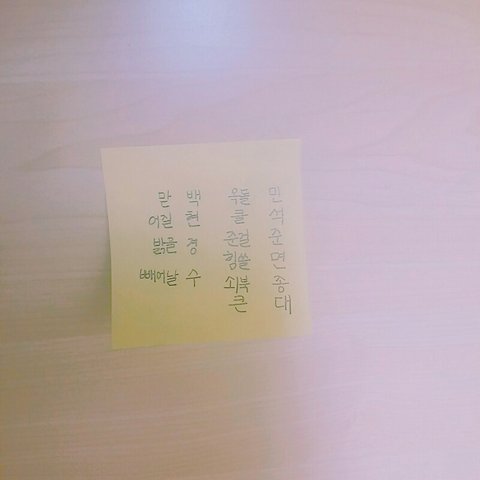 맏 백
어질 현
밝을 경
빼어날 수
옥돌 민
클 석
준걸 준
힘쓸 면
쇠북 종
큰 대